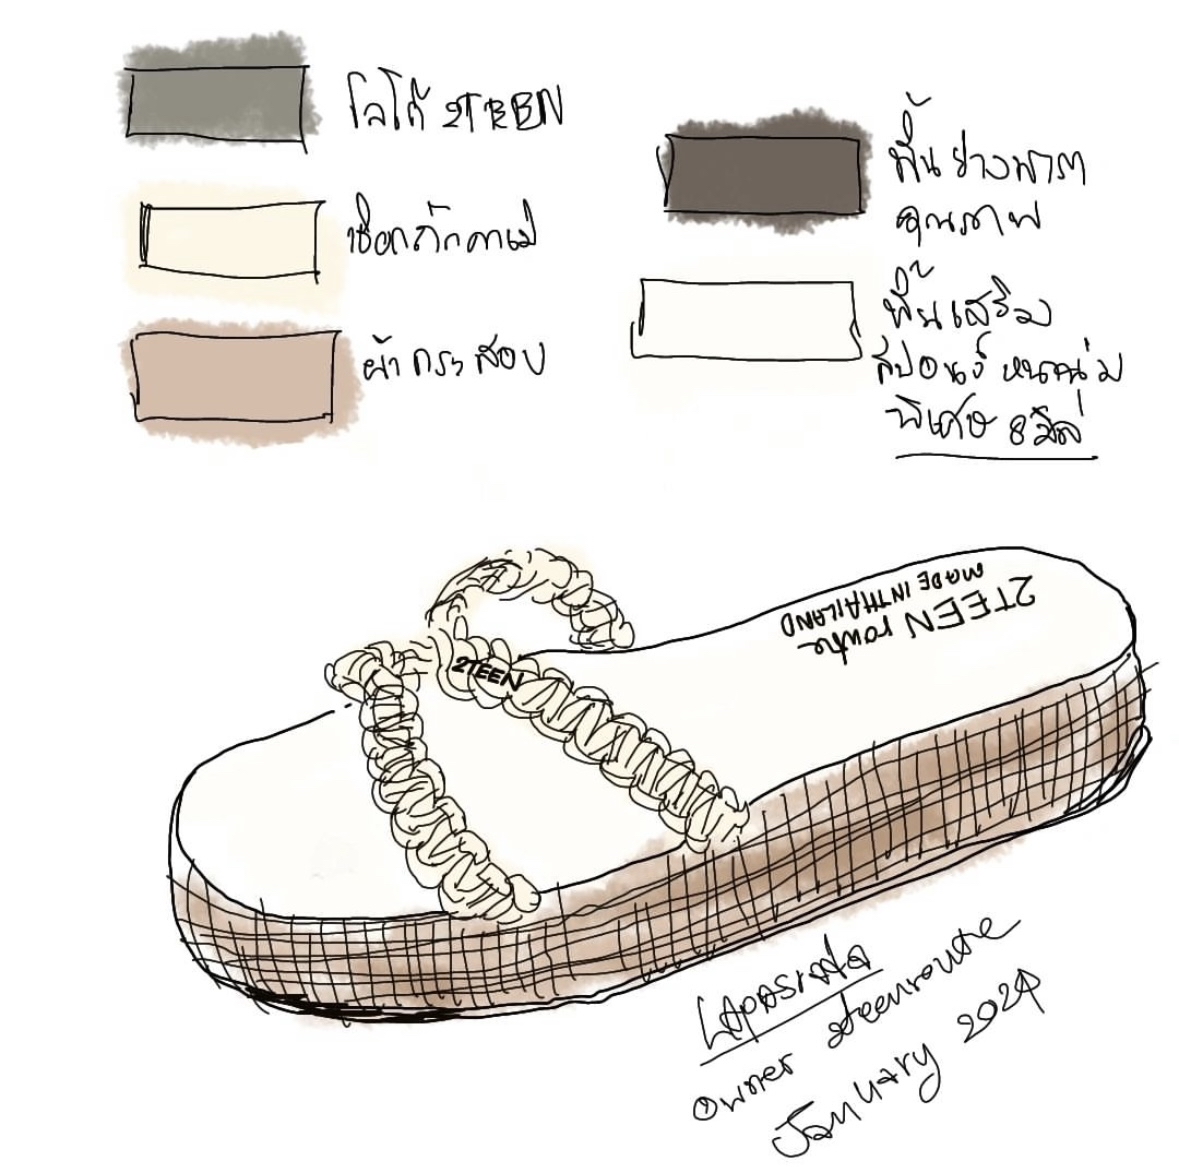 โลโก้ 2TEEN
เชือกถักคาเม่
ผ้ากระสอบ
พื้นยางพารา
คุณภาพ
พื้นเสริม
สปอนจ์ หนานุ่ม
พิเศษ 8 มิล
2TEEN route
MADE IN THAILAND
2TEEN
owner 2teenroute
January 2024